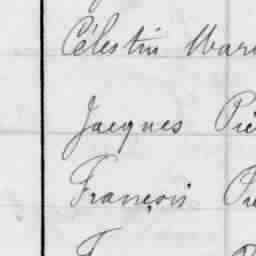 Célestin Mari
Jacques Pie
François